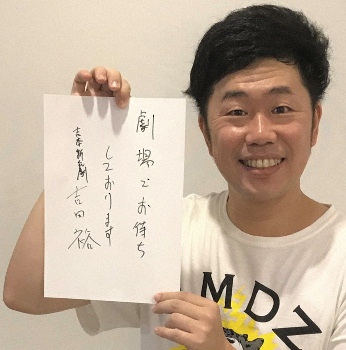 劇場でお待ち
しております
吉本新喜劇 吉田 裕
MDZ